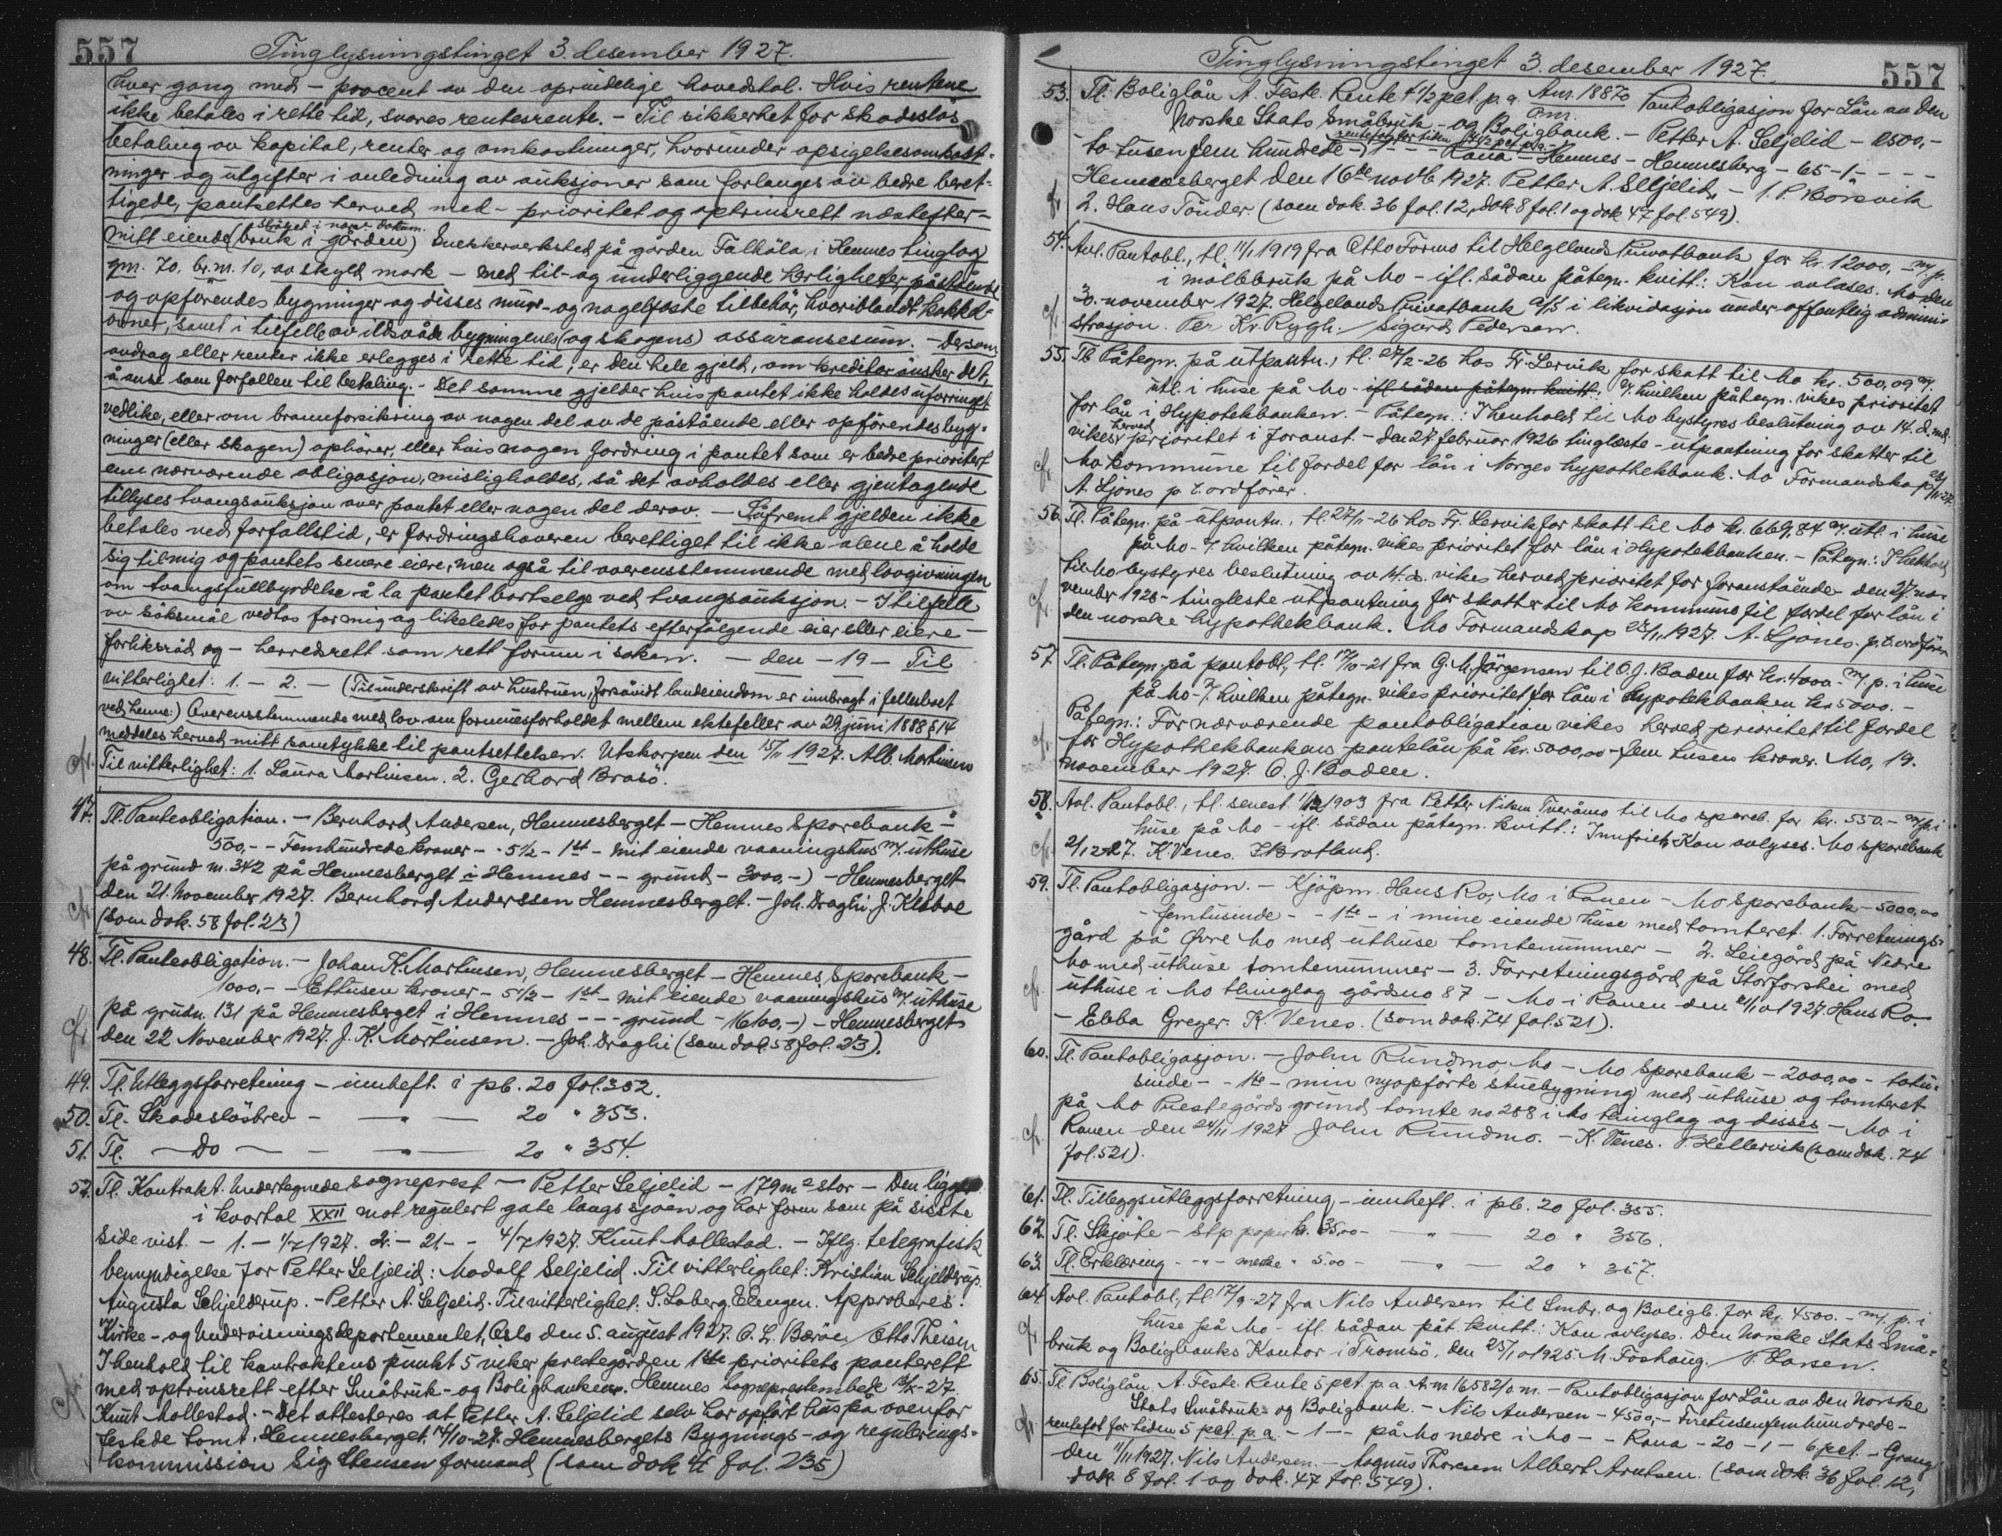 557
Tinglysningstinget 3. desember 1927.
hver gang med – procent av den oprindelige hovedstol. Hvis rentene
ikke betales i rette tid, svares rentesrente. – Til sikkerhet for skadeslös
betaling av kapital, renter og omkostninger, hvorunder opsigelsesomkost-
ninger og utgifter i anledning av auksjoner som forlanges av bedre beret-
tigede, pantsettes herved med – prioritet og optrinsrett næstefter –
ströket i nom. dokum.
mitt eiende (bruk i gården) Sneskerverksted på gården Falhåla, i Hemnes tinglag
gm. 70. br. m. 10, av skyld mark – med til- og underliggende herligheter påstående
og opförendes bygninger og disses mur- og nagelfaste tilbehör, hvoriblandt kakkel-
ovner, samt i tilfelle av ildsvåde bygningenes (og skogens) assuransesum. – Dersom
avdrag eller renter ikke erlegges i rette tid, er den hele gjeld, om kreditor önsker det,
å anse som forfallen til betaling. – Det samme gjelder hvis pantet ikke holdes uforringet
vedlike, eller om brannforsikring av nogen del av de påstående eller opförendes byg-
ninger (eller skogen) ophörer, eller hvis nogen fordring i pantet som er bedre prioritert
enn nærværende obligasjon, misligholdes, så det avholdes eller gjentagende
tillyses tvangsauksjon over pantet eller nogen del derav. – Såfremt gjelden ikke
betales ved forfallstid, er fordringshaveren berettiget til ikke alene å holde
sig til mig og pantets senere eiere, men også til overensstemmende med lovgivningen
om tvangsfullbyrdelse å la pantet bortselge ved tvangsauksjon. – I tilfelle
av söksmål vedtas for mig og likeledes for pantets efterfölgende eier eller eiere –
forliksråd og – herredsrett som rett forum i saken. – den – 19 – Til
vitterlighet: 1. – 2. – (Til underskrift av hustruen, forsåvidt landeiendom er innbragt i fellesboet
ved henne:) Overensstemmende med lov om formuesforholdet mellem ektefeller av 29 juni 1888 § 14
meddeles herved mitt samtykke til pantsettelsen. Utskarpen den 15/11 1927. Alb. Martinsen
cfr. Til vitterlighet: 1. Laura Martinsen. 2. Gerhard Brasö.
47. Tl. Panteobligation. – Bernhard Andersen, Hemnesberget – Hemnes Sparebank –
500,- – Femhundrede kroner – - 5½ – 1ste – mit eiende vaaningshus m/. uthuse
på grund m. 342 på Hemnesberget i Hemnes – – grund – 3000,-) – Hemnesberget
den 21. November 1927. Bernhard Anderssen Hemnesberget. – Joh. Draghi J. Klæboe
cfr. (som dok. 58 fol. 23)
48. Tl. Panteobligation. – Johan K. Martinsen, Hemnesberget – Hemnes Sparebank –
1000,- – Ettusen kroner – 5½ – 1ste – mit eiende vaaningshus m/. uthuse
på grudn. 131 på Hemnesberget i Hemnes – – – grund – 16100,-) – Hemnesberget
cfr. den 22 November 1927. J. K. Martinsen. – Joh. Draghi (som dok. 58 fol. 23).
49. Tl. Utleggsforretning – innheft. i pb. 20 fol. 352.
50. Tl. Skadeslösbrev – " – 20 " 353.
51. Tl. – Do – – " – 20 " 354.
52. Tl. Kontrakt. Undertegnede sogneprest – Petter Seljelid – 179 m² stor – Den ligger
i kvartal XXII mot regulert gate langs sjöen og har form som på sisste
side vist. – 1. – 1/7 1927. 2. – 21 – – 4/7 1927. Knut Mollestad. – Iflg. telegrafisk
bemyndigelse for Petter Seljelid: Modolf Seljelid. Til vitterlighet: Kristian Schjelderup.
Augusta Schjelderup. – Petter A. Seljelid. Til vitterlighet. S. Laberg. Elengen. Approberes.
Kirke- og Undervisningsdepartementet, Oslo den 5. august 1927. O. L. Bærøe / Otto Theisen
I henhold til kontraktens punkt 5 viker prestegården 1ste prioritets panterett
med optrinsrett efter Småbruk- og Boligbanken. Hemnes sogneprestembede -27.
cfr. Knut Mollestad. – Det attesteres at Petter A. Seljelid selv har opfört hus på ovenfor
festede tomt. Hemnesberget 14/10-27. Hemnesbergets Bygnings- og regulerings-
kommission Sig Stensen formand (som dok 4 fol. 235)
557
Tinglysningstinget 3. desember 1927.
53. Tl. Boliglån A. Feste. Rente 4½ pct. p. a. Anr. 18870 Pantobligasjon for Lån av Den
Norske Stats Småbruk- og Boligbank. – Petter A. Seljelid – 2500,-
rentefot for tiden 4½ pct p.a.
to tusen fem hundrede – 1 – – Rana – Hemnes – Hemnesberg – 65 – 1 – – –
Hemnesberget den 16de novbr 1927. Petter A. Selljelid, – 1. P. Borsvik
cfr. 2. Hans Tönder (som dok. 36 fol. 12, dok 8 fol. 1 og dok 47 fol. 549).
54. Avl. Pantobl., tl. 1/1 1919 fra Otto Formo til Helgelands Privatbank for kr. 12000,- m/. p.
i målbbruk på Mo – ifl. sådan påtegn. kvitt.: Kan avlases. Mo den
cfr. 30. november 1927. Helgelands Privatbank A/S i likvidasjon under offentlig admini-
strasjon. Per Kr. Rygh. / Sigurd Pedersen.
55. Tl. Påtegn. på utpantn., tl. 27/2-26 hos Fr. Lervik for skatt til Mo kr. 500,09 m/.
utl. i huse på Mo – ifl. sådan påtegn. kvitt.: m/. hvilken påtegn. vikes prioritet
for lån i Hypotekbanken. – Påtegn.: I henhold til Mo bystyres beslutning av 14. d. md.
vikes herved prioritet i foranst. – den 27 februar 1926 tinglæste – utpantning for skatter til
cfr. Mo kommune til fordel for lån i Norges hypothekbank. Mo Formandskap 28/11-27.
A. Ljones p. t. ordfører.
56. Tl. Påtegn. på utpantn., tl. 27/11-26 hos Fr. Lervik for skatt til Mo kr. 669,84 m/. utl. i huse
på Mo – m/. hvilken påtegn. vikes prioritet for lån i Hypotekbanken. – Påtegn.: I henhold
til Mo bystyres beslutning av 14. ds. vikes herved prioritet for foranstående den 27 no-
cfr. vember 1926 – tingleste utpantning for skatter til Mo kommune til fordel for lån i
den norske hypothekbank. Mo Formandskap 28/11 1927. A. Ljones. p. t. ordfører
57. Tl. Påtegn. på pantobl., tl. 17/10-21 fra G. M. Jörgensen til O. J. Baden for kr. 4000.- m/. p. i huse
på Mo – m/. hvilken påtegn. vikes prioritet for lån i hypotekbanken kr. 5000.-
Påtegn.: For nærværende pantobligation vikes herved prioritet til fordel
cfr. for Hypothekbankens pantelån på kr. 5000,00 – fem tusen kroner. Mo, 19.
november 1927. O. J. Baden.
58. Avl. Pantobl., tl. senest 1/12 1903 fra Petter Nilsen Tveråmo til Mo spareb. for kr. 550.- m/p i
huse på Mo – ifl. sådan påtegn. kvitt.: Innfriet, Kan avlyses. Mo Sparebank
cfr. 2/12-27. K. Venes. I. Brotland.
59. Tl. Pantobligasjon. – Kjöpm. Hans Ro, Mo i Ranen – Mo Sparebank – 5000,00
– femtusinde – – 1ste – i mine eiende huse med tomteret. 1. Forretnings-
gård på Övre Mo med uthuse tomtenummer – 2. Leiegård på Nedre
Mo med uthuse tomtenummer – 3. Forretningsgård på Storforshei med
cfr. uthuse i Mo thinglag gårdsno 87 – Mo i Ranen den 21/10 1927. Hans Ro.
– Ebba Greger. K. Venes. (som dok. 74 fol. 521).
60. Tl. Pantobligasjon. – John Rundmo, Mo – Mo Sparebank – 2000,00 – totu-
sinde – – 1ste – min nyopförte stuebygning med uthuse og tomteret
på Mo Prestegårds grund tomte no 288 i Mo thinglag og disses – Mo i
cfr. Ranen den 24/11 1927 John Rundmo. – K. Venes. P. Hellervik (som dok. 74
fol. 521).
61. Tl. Tilleggsutleggsforretning – innheft. i pb. 20 fol. 355.
62. Tl. Skjöte – Stp. papir kr. 35.00 – " – 20 " 356.
63. Tl. Erklæring – – " – merke " 5.00 – – " – 20 " 357.
64. Avl. Pantobl., tl. 17/9-27 fra Nils Andersen til Småbr. og Boligb. for kr. 4500.- m/. p. i
cfr. huse på Mo – ifl. sådan påt. kvitt.: Kan avlyses. Den Norske Stats Små-
bruk og Boligbanks Kontor i Tromsö, den 25/10 1925 M. Foshaug. P. Larsen.
65. Tl. Boliglån A. Feste. Rente 5 pct. p. a. A. m 16582/0. m. – Pantobligasjon for Lån av Den Norske
Stats Småbruk- og Boligbank. – Nils Andersen – 4500,- – Firetusenfemhundrede –
cfr. rentefot for tiden 5 pct. p. a. – 1 – – på Mo nedre i Mo – – Rana – 20 – 1 – 6 pct. – Grong
den 11/11 1927. Nils Andersen. – Magnus Thoresen Albert Arntsen. (som dok. 36 fol. 12,
dok. 8 fol. 1 og dok. 47 fol. 549).